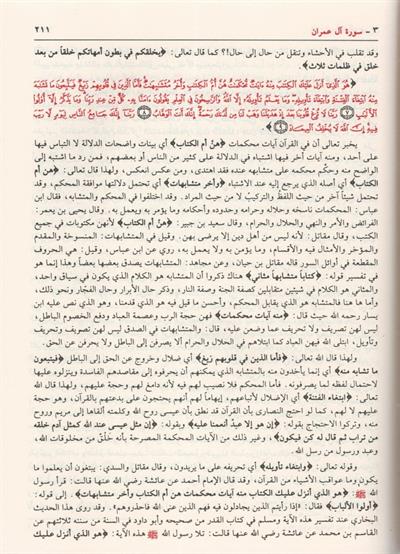 ٣ - سورة آل عمران ٢١١
وقد تقلب في الأحشاء وتنقل من حال إلى حال!؟ كما قال تعالى: ﴿يخلقكم في بطون أمهاتكم خلقاً من بعد
خلق في ظلمات ثلاث﴾.
هُوَ الَّذِي أَنْزَلَ عَلَيْكَ الْكِتَابَ مِنْهُ آيَاتٌ مُحْكَمَاتٌ هُنَّ أُمُّ الْكِتَابِ وَأُخَرُ مُتَشَابِهَاتٌ فَأَمَّا الَّذِينَ فِي قُلُوبِهِمْ زَيْغٌ فَيَتَّبِعُونَ مَا تَشَابَهَ
مِنْهُ ابْتِغَاءَ الْفِتْنَةِ وَابْتِغَاءَ تَأْوِيلِهِ وَمَا يَعْلَمُ تَأْوِيلَهُ إِلَّا اللَّهُ وَالرَّاسِخُونَ فِي الْعِلْمِ يَقُولُونَ آمَنَّا بِهِ كُلٌّ مِنْ عِنْدِ رَبِّنَا وَمَا يَذَّكَّرُ إِلَّا أُولُو
الْأَلْبَابِ ٧ رَبَّنَا لَا تُزِغْ قُلُوبَنَا بَعْدَ إِذْ هَدَيْتَنَا وَهَبْ لَنَا مِنْ لَدُنْكَ رَحْمَةً إِنَّكَ أَنْتَ الْوَهَّابُ ٨ رَبَّنَا إِنَّكَ جَامِعُ النَّاسِ لِيَوْمٍ لَا رَيْبَ
فِيهِ إِنَّ اللَّهَ لَا يُخْلِفُ الْمِيعَادَ ٩
يخبر تعالى أن في القرآن آيات محكمات ﴿هن أم الكتاب﴾ أي بينات واضحات الدلالة لا التباس فيها
على أحد، ومنه آيات أخر فيها اشتباه في الدلالة على كثير من الناس أو بعضهم، فمن رد ما اشتبه إلى
الواضح منه وحكّم محكمه على متشابهه عنده فقد اهتدى، ومن عكس انعكس، ولهذا قال تعالى: ﴿هن أم
الكتاب﴾ أي أصله الذي يرجع إليه عند الاشتباه ﴿وأخر متشابهات﴾ أي تحتمل دلالتها موافقة المحكم، وقد
تحتمل شيئاً آخر من حيث اللفظ والتركيب لا من حيث المراد. وقد اختلفوا في المحكم والمتشابه، فقال ابن
عباس: المحكمات ناسخه وحلاله وحرامه وحدوده وأحكامه وما يؤمر به ويعمل به. وقال يحيى بن يعمر:
الفرائض والأمر والنهي والحلال والحرام، وقال سعيد بن جبير: ﴿هن أم الكتاب﴾ لأنهن مكتوبات في جميع
الكتب، وقال مقاتل: لأنه ليس من أهل دين إلا يرضى بهن. وقيل في المتشابهات: المنسوخة والمقدم
والمؤخر والأمثال فيه والأقسام، وما يؤمن به ولا يعمل به، روي عن ابن عباس. وقيل: هي الحروف
المقطعة في أوائل السور قاله مقاتل بن حيان، وعن مجاهد: المتشابهات يصدق بعضها بعضاً وهذا إنما هو
في تفسير قوله: ﴿كتاباً متشابهاً مثاني﴾ هناك ذكروا أن المتشابه هو الكلام الذي يكون في سياق واحد،
والمثاني هو الكلام في شيئين متقابلين كصفة الجنة وصفة النار، وذكر حال الأبرار وحال الفجار ونحو ذلك،
وأما ها هنا فالمتشابه هو الذي يقابل المحكم، وأحسن ما قيل فيه هو الذي قدمنا، وهو الذي نص عليه ابن
يسار رحمه الله حيث قال: ﴿منه آيات محكمات﴾ فهن حجة الرب وعصمة العباد ودفع الخصوم الباطل،
ليس لهن تصريف ولا تحريف عما وضعن عليه، قال: والمتشابهات في الصدق ليس لهن تصريف وتحريف
وتأويل، ابتلى الله فيهن العباد كما ابتلاهم في الحلال والحرام ألا يصرفن إلى الباطل ولا يحرفن عن الحق.
ولهذا قال الله تعالى: ﴿فأما الذين في قلوبهم زيغ﴾ أي ضلال وخروج عن الحق إلى الباطل ﴿فيتبعون
ما تشابه منه﴾ أي إنما يأخذون منه بالمتشابه الذي يمكنهم أن يحرفوه إلى مقاصدهم الفاسدة وينزلوه عليها
لاحتمال لفظه لما يصرفونه. فأما المحكم فلا نصيب لهم فيه لأنه دامغ لهم وحجة عليهم، ولهذا قال الله
تعالى: ﴿ابتغاء الفتنة﴾ أي الإضلال لأتباعهم، إيهاماً لهم أنهم يحتجون على بدعتهم بالقرآن، وهو حجة
عليهم لا لهم، كما لو احتج النصارى بأن القرآن قد نطق بأن عيسى روح الله وكلمته ألقاها إلى مريم وروح
منه، وتركوا الاحتجاج بقوله: ﴿إن هو إلا عبدٌ أنعمنا عليه﴾ وبقوله: ﴿إن مثل عيسى عند الله كمثل آدم خلقه
من تراب ثم قال له كن فيكون﴾، وغير ذلك من الآيات المحكمة المصرحة بأنه خَلْقٌ من مخلوقات الله،
وعبد ورسول من رسل الله.
وقوله تعالى: ﴿وابتغاء تأويله﴾ أي تحريفه على ما يريدون، وقال مقاتل والسدي: يبتغون أن يعلموا ما
يكون وما عواقب الأشياء من القرآن، وقد قال الإمام أحمد عن عائشة رضي الله عنها قالت: قرأ رسول
الله ﷺ: ﴿هو الذي أنزل عليك الكتاب منه آيات محكمات هن أم الكتاب وأخر متشابهات﴾ . إلى قوله:
﴿أولوا الألباب﴾ فقال: «إذا رأيتم الذين يجادلون فيه فهم الذين عنى الله فاحذروهم». وقد روى هذا الحديث
البخاري عند تفسير هذه الآية ومسلم في كتاب القدر من صحيحه وأبو داود في السنة من سننه ثلاثتهم عن
القاسم بن محمد عن عائشة رضي الله عنها قالت: تلا رسول الله ﷺ هذه الآية: ﴿هو الذي أنزل عليك